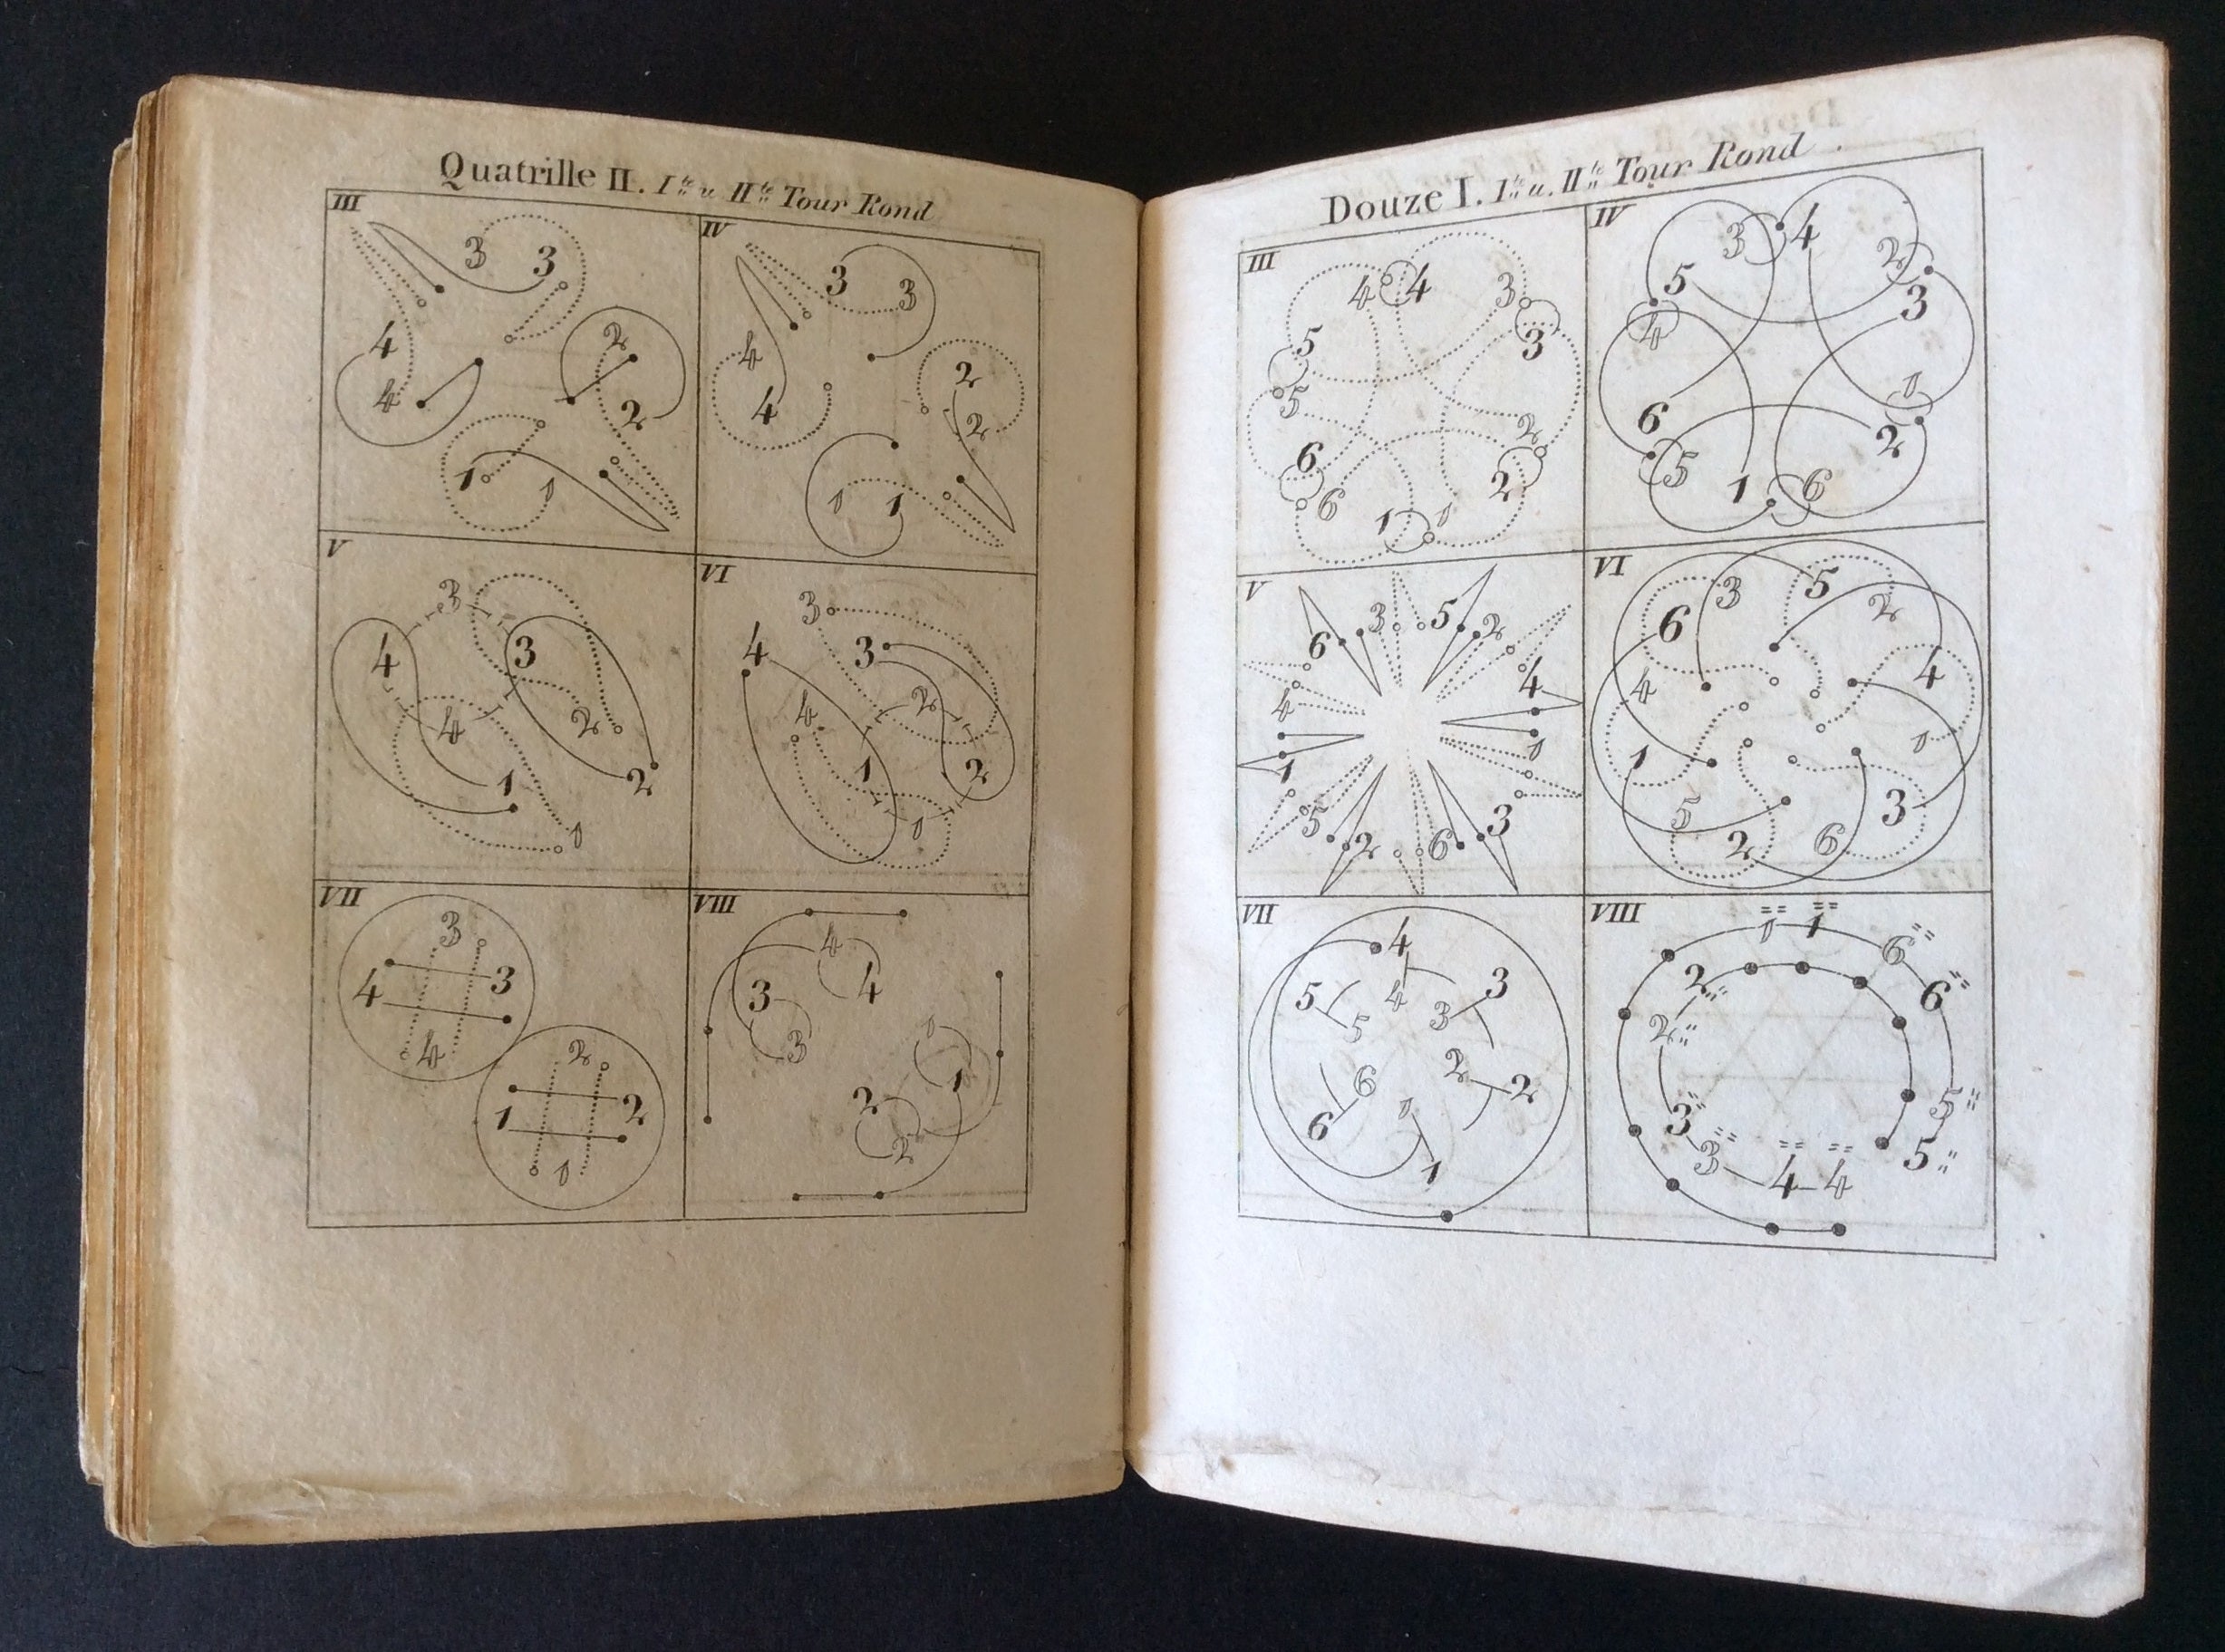 Quatrille II. I.te u II.te Tour Rond
III
3 3
4 2
4 2
1 1
IV
3 3
4 2
4 2
1 1
V
3
4 3
4 2
1 2
1
VI
3
4 3
4 2
1 2
1
VII
3
4 3
4 2
1 2
1
VIII
4
3 4
3 1
2 1
2
Douze I. I.te u. II.te Tour Rond.
III
4 4 3
5 3
5 2
6 2
6 1 1
IV
3 4 2
5 3
4 1
6 2
5 1 6
V
3 5 2
6 4
4 1
1 3
5 2 6
VI
3 5 2
6 4
4 1
1 3
5 2 6
VII
4
5 4 3 3
5 2 2
6 1
6 1
VIII
1 1 6
2 6
2 5
3 5
3 4 4